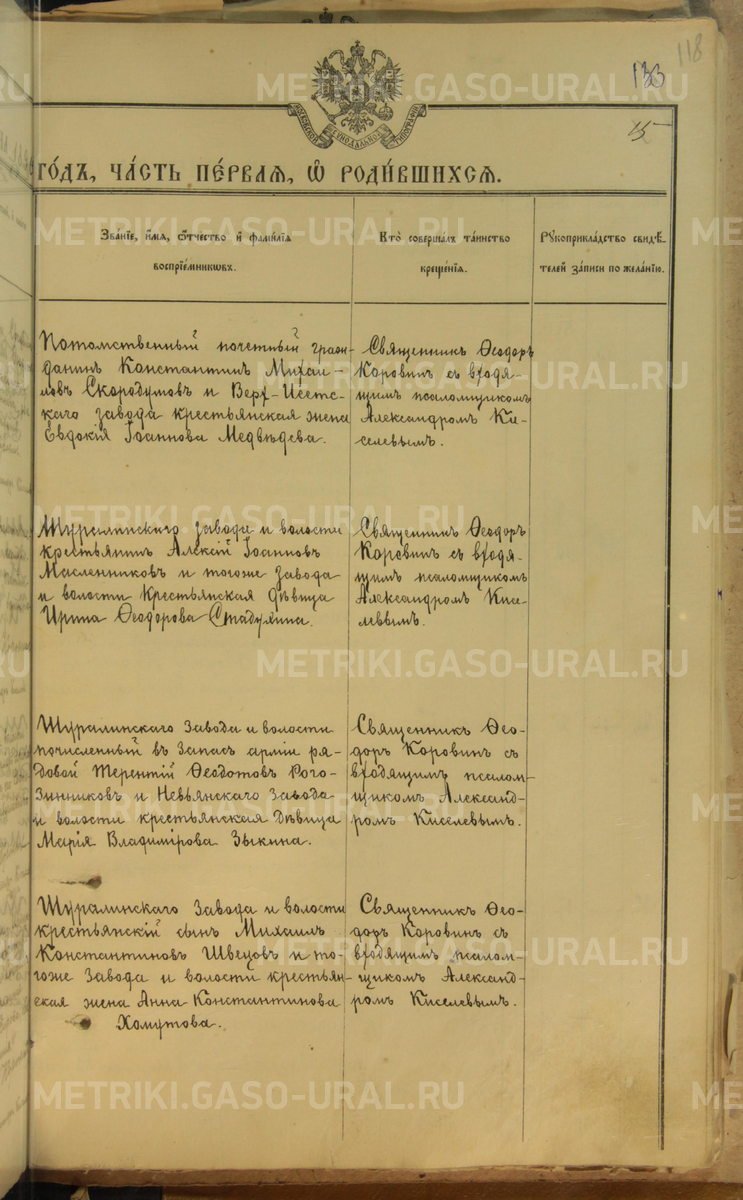 118
133
15
МОСКОВСКОЙ СѴНОДАЛЬНОЙ ТИПОГРАФІИ
го́дъ, ча́сть пе́рваѧ, ѡ҆ роди́вшихсѧ.
Зва́нїе, и҆́мѧ, ѻ҆́тчество и҆ фами́лїѧ
воспрїе́мникѡвъ.
Кто̀ соверша́лъ та́инство
креще́нїѧ.
Рꙋкоприкла́дство свидѣ́-
телей за́писи по жела́нїю.
Потомственный почетный граж-
данинъ Константинъ Михаи-
ловъ Скородумовъ и Верх-Исетс-
каго завода крестьянская жена
Евдокія Іоаннова Медвѣдева.
Священникъ Ѳеодоръ
Коровинъ съ входя-
щимъ псаломщикомъ
Александромъ Ки-
селевымъ.
Шуралинскаго завода и волости
крестьянинъ Алексій Іоанновъ
Масленниковъ и тогоже завода
и волости крестьянская дѣвица
Ирина Ѳеодорова Стадухина.
Священникъ Ѳеодоръ
Коровинъ съ входя-
щимъ псаломщикомъ
Александромъ Кисе-
левымъ.
Шуралинскаго завода и волости
почисленный въ запасъ арміи ря-
довой Терентій Ѳеодотовъ Рого-
зинниковъ и Невьянскаго завода
и волости крестьянская дѣвица
Марія Владимірова Зыкина.
Священникъ Ѳео-
доръ Коровинъ съ
входящимъ псалом-
щикомъ Александ-
ромъ Киселевымъ.
Шуралинскаго завода и волости
крестьянскій сынъ Михаилъ
Константиновъ Швецовъ и то-
гоже завода и волости крестьян-
ская жена Анна Константинова
Хомутова.
Священникъ Ѳео-
доръ Коровинъ съ
входящимъ псалом-
щикомъ Александ-
ромъ Киселевымъ.
METRIKI.GASO-URAL.RU
METRIKI.GASO-URAL.RU
METRIKI.GASO-URAL.RU
METRIKI.GASO-URAL.RU
METRIKI.GASO-URAL.RU
METRIKI.GASO-URAL.RU
METRIKI.GASO-URAL.RU
METRIKI.GASO-URAL.RU